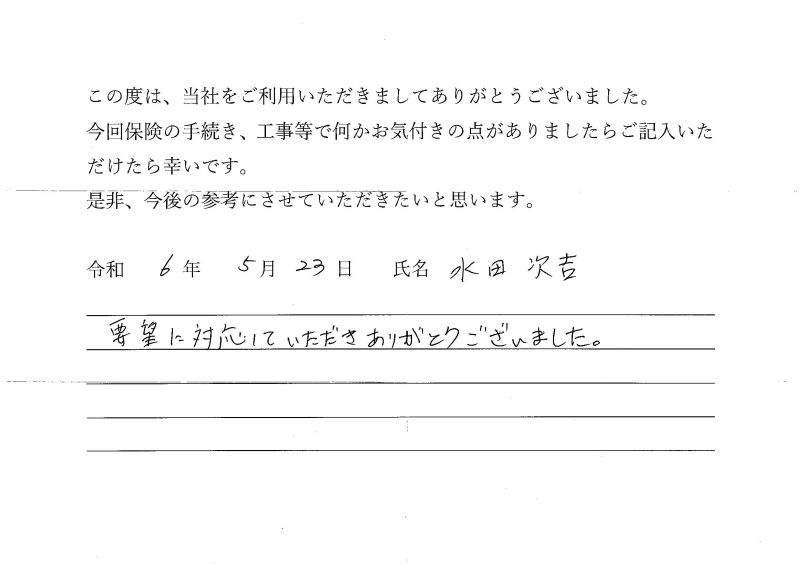 この度は、当社をご利用いただきましてありがとうございました。
今回保険の手続き、工事等で何かお気付きの点がありましたらご記入いた
だけたら幸いです。
是非、今後の参考にさせていただきたいと思います。
令和 6 年 5 月 23 日 氏名 水田 次吉
要望に対応していただきありがとうございました。